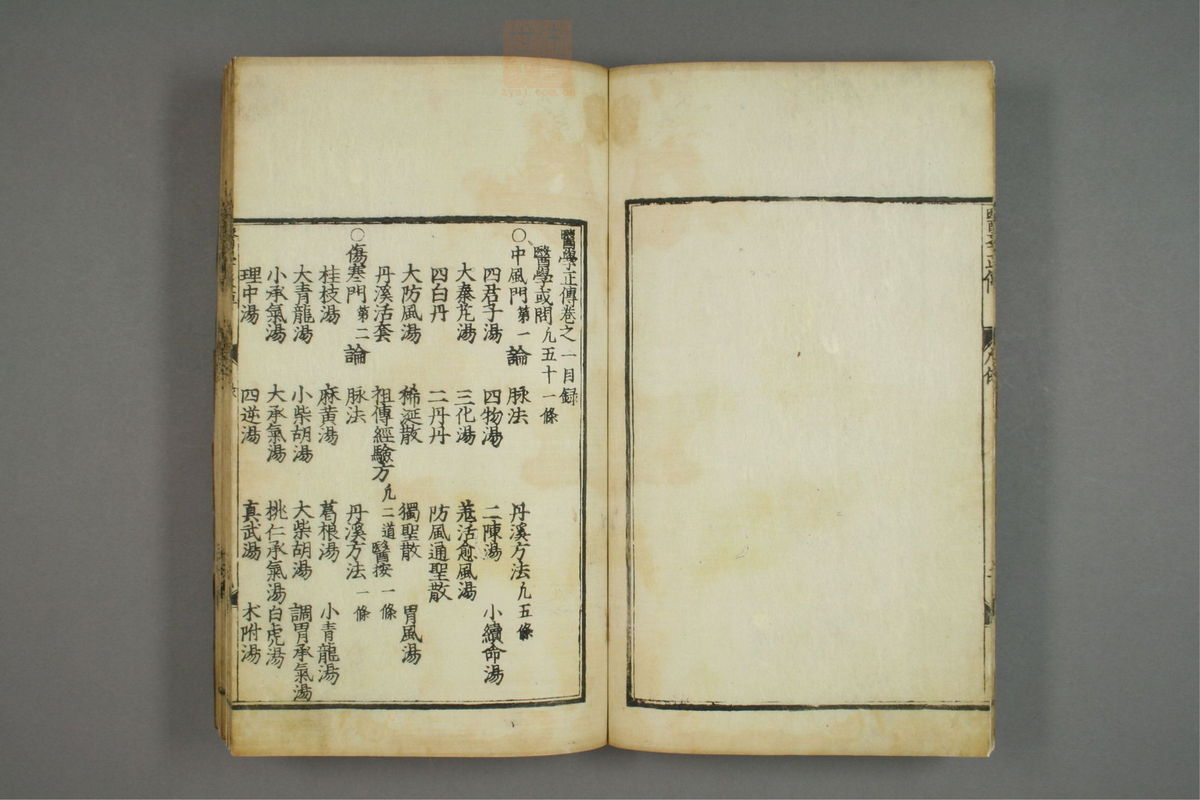 醫學正傳卷之一目録
醫學或問 凢五十一條
○中風門 第一 論 脉法 丹溪方法 凢五條
四君子湯 四物湯 二陳湯 小續命湯
大秦艽湯 三化湯 羗活愈風湯
四白丹 二丹丹 防風通聖散
大防風湯 稀涎散 獨聖散 胃風湯
丹溪活套 祖傳經驗方 凢二道 醫按 一條
○傷寒門 第二 論 脉法 丹溪方法 一條
桂枝湯 麻黃湯 葛根湯 小青龍湯
大青龍湯 小柴胡湯 大柴胡湯 調胃承氣湯
小承氣湯 大承氣湯 桃仁承氣湯 白虎湯
理中湯 四逆湯 真武湯 术附湯
醫學正傳